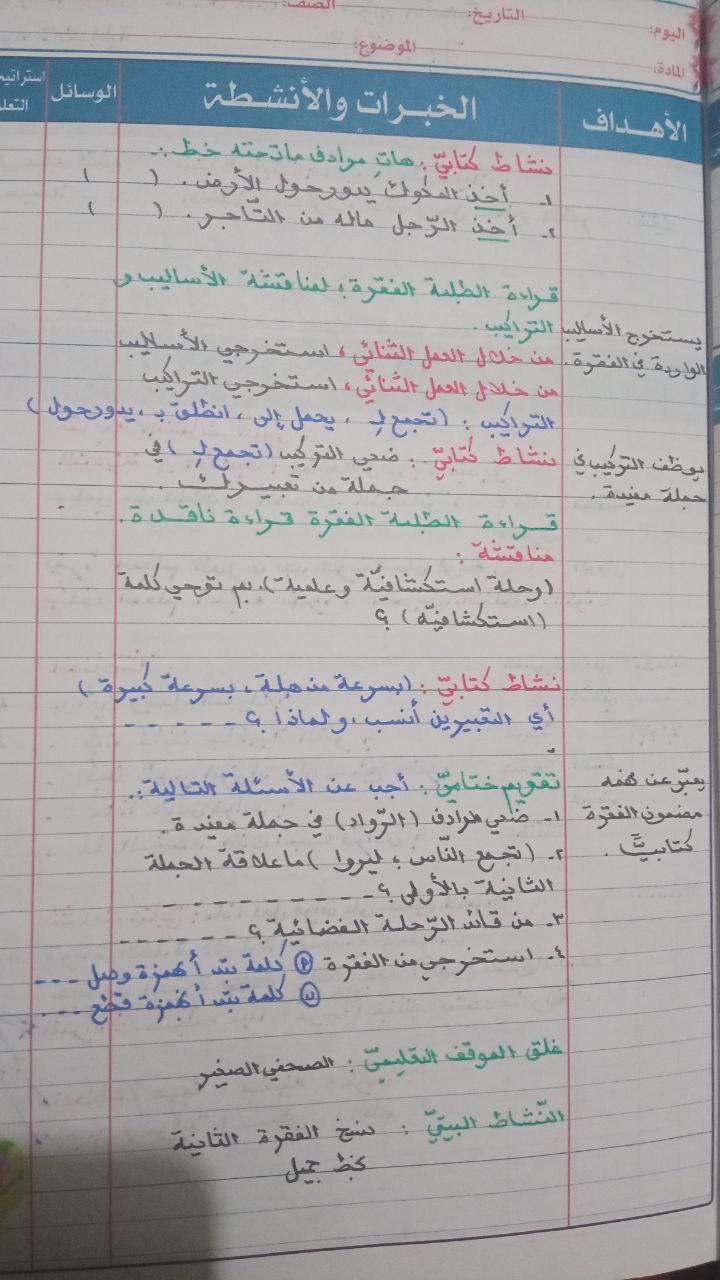 اليوم: التاريخ: الصف:
المادة: الموضوع:
الأهداف الخبرات والأنشطة الوسائل استراتيج
التعل
نشاط كتابيّ: هاتِ مرادف ما تحته خط :.
١- أخذ المكوك يدور حول الأرض. ( )
٢- أخذ الرّجل ماله من التّاجر. ( )
قراءة الطلبة الفقرة؛ لمناقشة الأساليب و
التراكيب.
يستخرج الأساليب
الواردة في الفقرة.
من خلال العمل الثنائيّ، استخرجي الأساليب
من خلال العمل الثنائيّ، استخرجي التراكيب
التراكيب: (تجمع لِـ ، يحمل إلى، انطلق بـ، يدور حول)
يوظف التركيب في
جملة مفيدة.
نشاط كتابيّ: ضعي التركيب (تجمع لِـ) في
جملة من تعبيرك.
قراءة الطلبة الفقرة قراءة ناقدة.
مناقشة:
(رحلة استكشافيّة وعلمية)، بم توحي كلمة
(استكشافيّة) ؟
نشاط كتابيّ: (بسرعة مذهلة، بسرعة كبيرة)
أي التعبيرين أنسب، ولماذا ؟ - - - - -
يعبّر عن فهمه
مضمون الفقرة
كتابيًّا.
تقويم ختاميّ: أجب عن الأسئلة التالية:.
١- ضعي مرادف (الرّواد) في جملة مفيدة.
٢- (تجمع النّاس؛ ليروا) ما علاقة الجملة
الثانية بالأولى ؟ - - - - - - - - -
٣- من قائد الرّحلة الفضائية ؟ - - - - - -
٤- استخرجي من الفقرة (أ) كلمة تبدأ بهمزة وصل - - -
(ب) كلمة تبدأ بهمزة قطع - - - -
غلق الموقف التعليميّ: الصحفي الصغير
النّشاط البيتيّ: نسخ الفقرة الثانية
بخط جميل